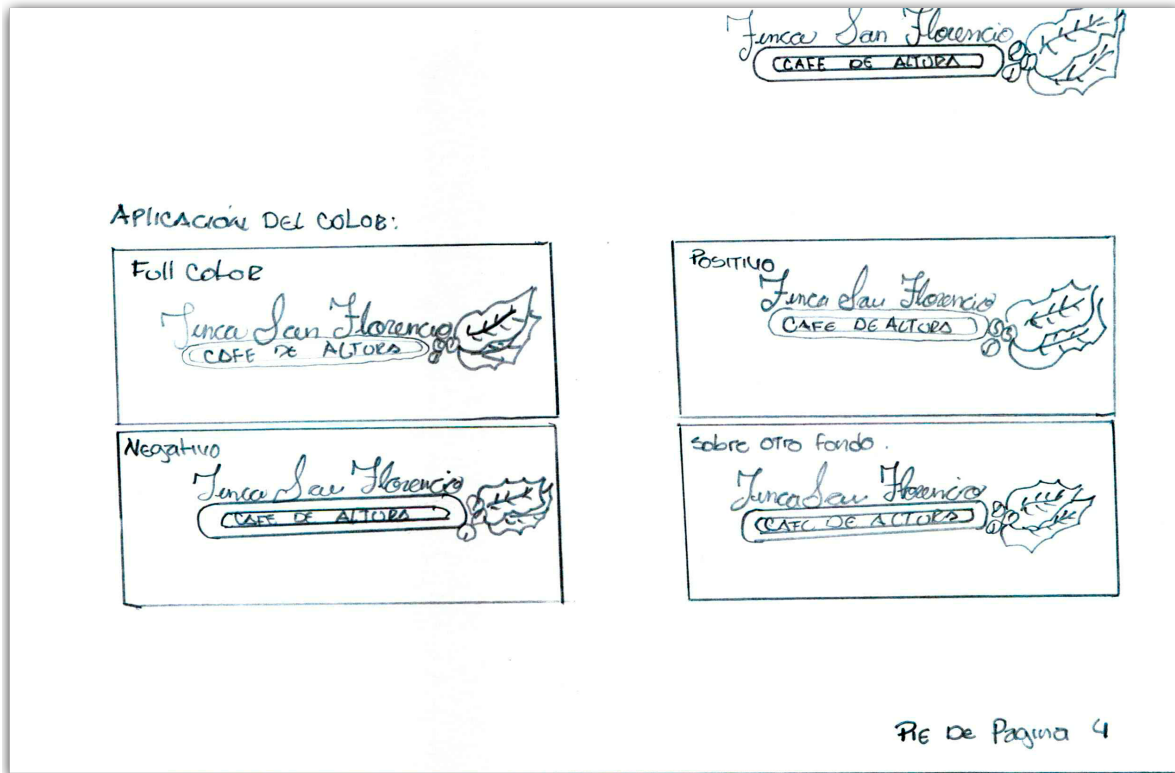 Finca San Florencio
CAFE DE ALTURA
APLICACIÓN DEL COLOR:
Full Color
Finca San Florencio
CAFE DE ALTURA
POSITIVO
Finca San Florencio
CAFE DE ALTURA
Negativo
Finca San Florencio
CAFE DE ALTURA
Sobre otro fondo.
Finca San Florencio
CAFE DE ALTURA
PIE De Pagina 4